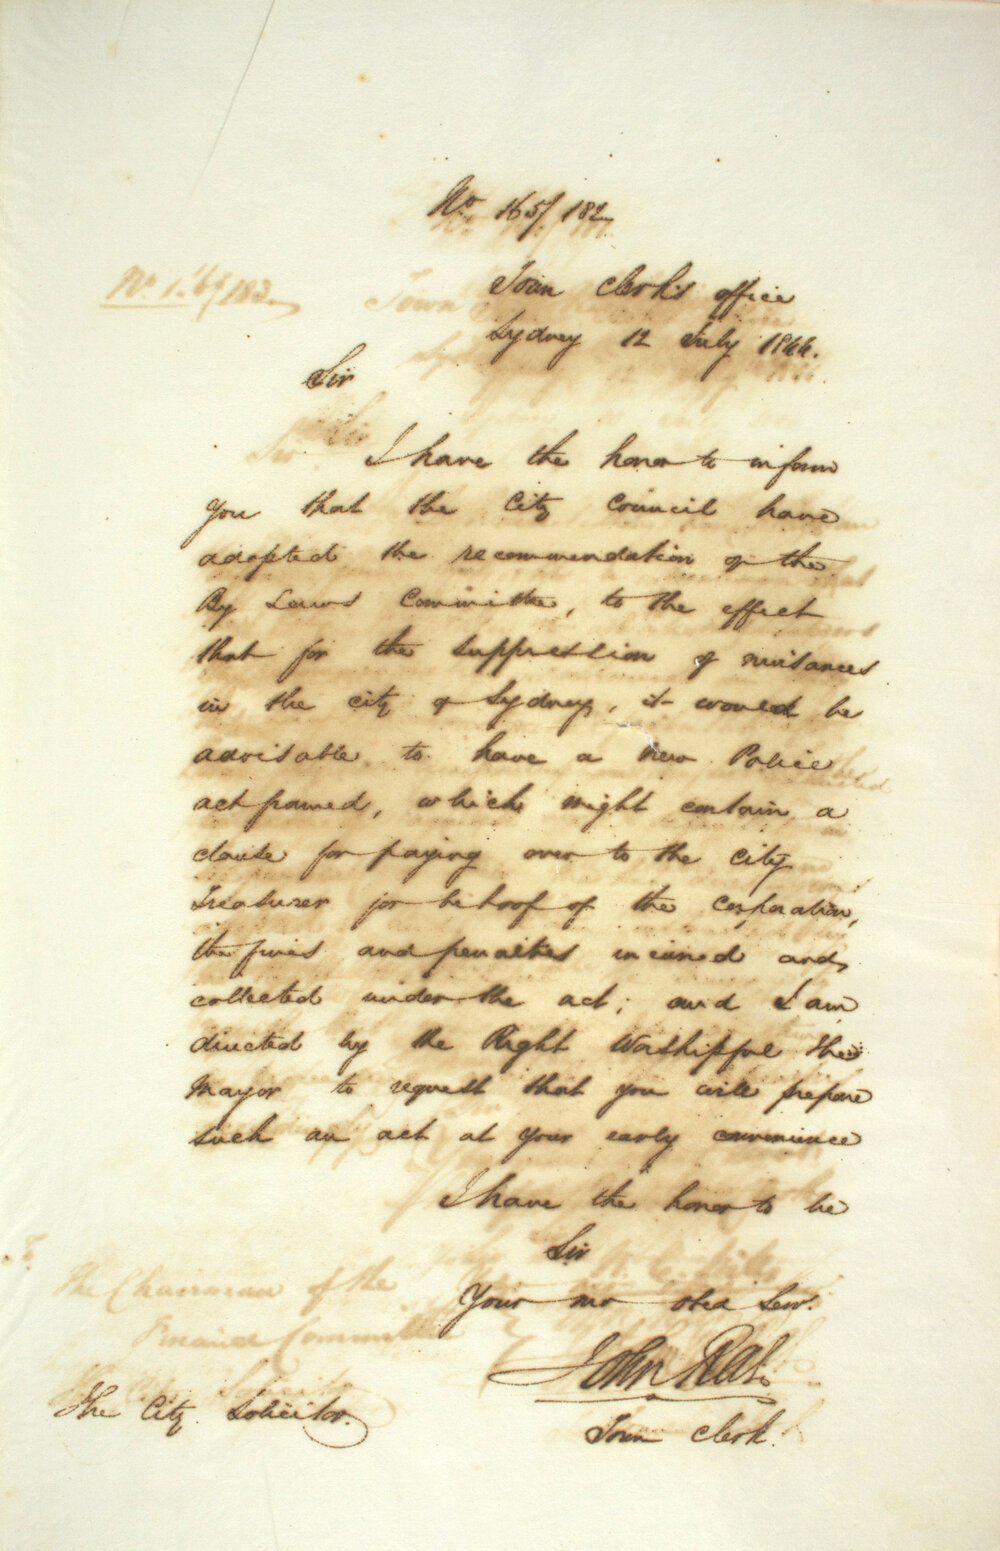 No 165/182
Town Clerk's office
Sydney 12 July 1844.
Sir
I have the honor to inform
you that the City Council have
adopted the recommendation of the
By Laws Committee, to the effect
that for the suppression of nuisances
in the city of Sydney, it would be
advisable to have a new Police
act framed, which might contain a
clause for paying over to the City
Treasurer for behoof of the Corporation,
the fines and penalties incurred and
collected under the act; and I am
directed by the Right Worshipful the
Mayor to request that you will prepare
such an act at your early convenience
I have the honor to be
Sir
Your mo obed Serv.
John Rae
Town Clerk.
The City Solicitor.
The Chairman of the
Finance Committee